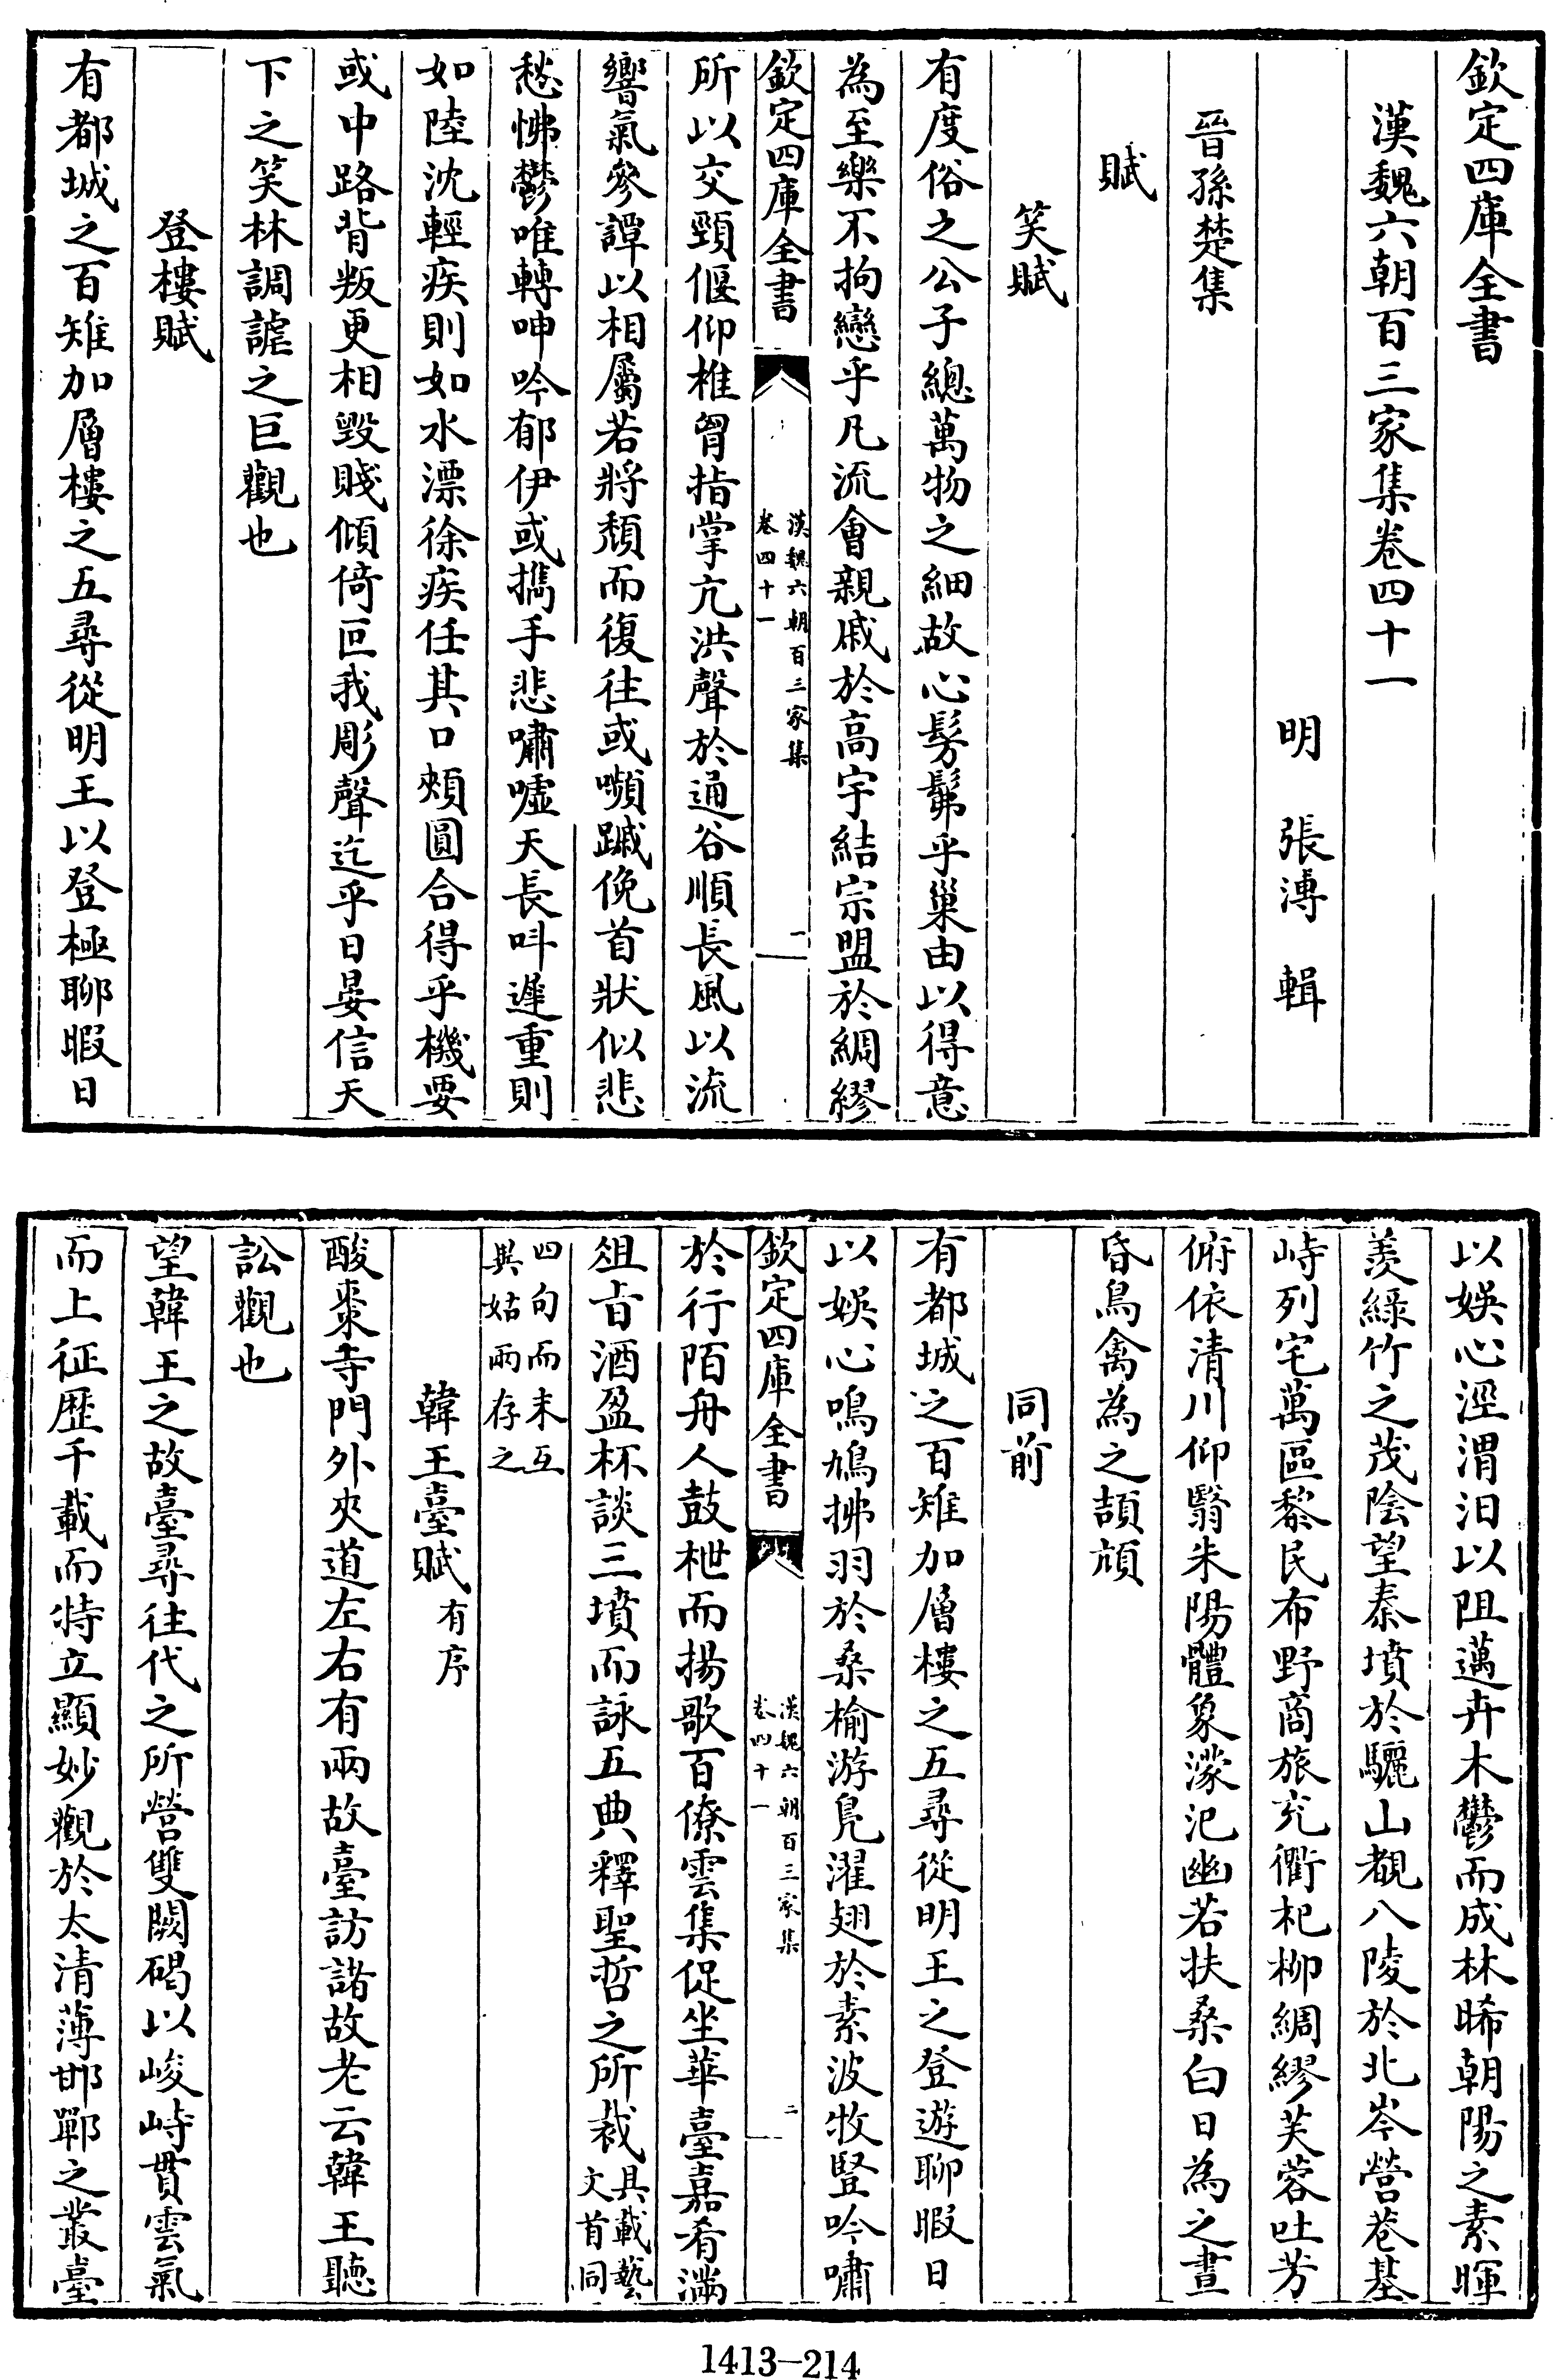 欽定四庫全書
漢魏六朝百三家集卷四十一
明 張溥 輯
晉孫楚集
賦
笑賦
有度俗之公子總萬物之細故心髣髴乎巢由以得意
為至樂不拘戀乎凡流會親戚於高宇結宗盟於綢繆
欽定四庫全書
漢魏六朝百三家集
卷四十一
一
所以交頸偃仰椎胷指掌亢洪聲於通谷順長風以流
響氣參譚以相屬若將頹而復往或嚬蹴俛首狀似悲
愁怫鬱唯轉呻吟郁伊或攜手悲嘯噓天長叫遲重則
如陸沈輕疾則如水漂徐疾任其口頰圓合得乎機要
或中路背叛更相毀賤傾倚叵我彫聲迄乎日晏信天
下之笑林調謔之巨觀也
登樓賦
有都城之百雉加層樓之五尋從明王以登極聊暇日
以娛心涇渭汩以阻邁卉木鬱而成林晞朝陽之素暉
羨綠竹之茂陰望秦墳於驪山覩八陵於北岑營巷基
峙列宅萬區黎民布野商旅充衢杞柳綢繆芙蓉吐芳
俯依清川仰翳朱陽體象濛汜幽若扶桑白日為之晝
昏鳥禽為之頡頏
同前
有都城之百雉加層樓之五尋從明王之登遊聊暇日
以娛心鳴鳩拂羽於桑榆游鳧濯翅於素波牧豎吟嘯
欽定四庫全書
漢魏六朝百三家集
卷四十一
二
於行陌舟人鼓枻而揚歌百僚雲集促坐華臺嘉肴滿
俎旨酒盈杯談三墳而詠五典釋聖哲之所裁具載藝文首同
四句而末互異姑兩存之
韓王臺賦有序
酸棗寺門外夾道左右有兩故臺訪諸故老云韓王聽
訟觀也
望韓王之故臺尋往代之所營雙闕碣以峻峙貫雲氣
而上征歷千載而特立顯妙觀於太清薄邯鄲之叢臺
1413-214